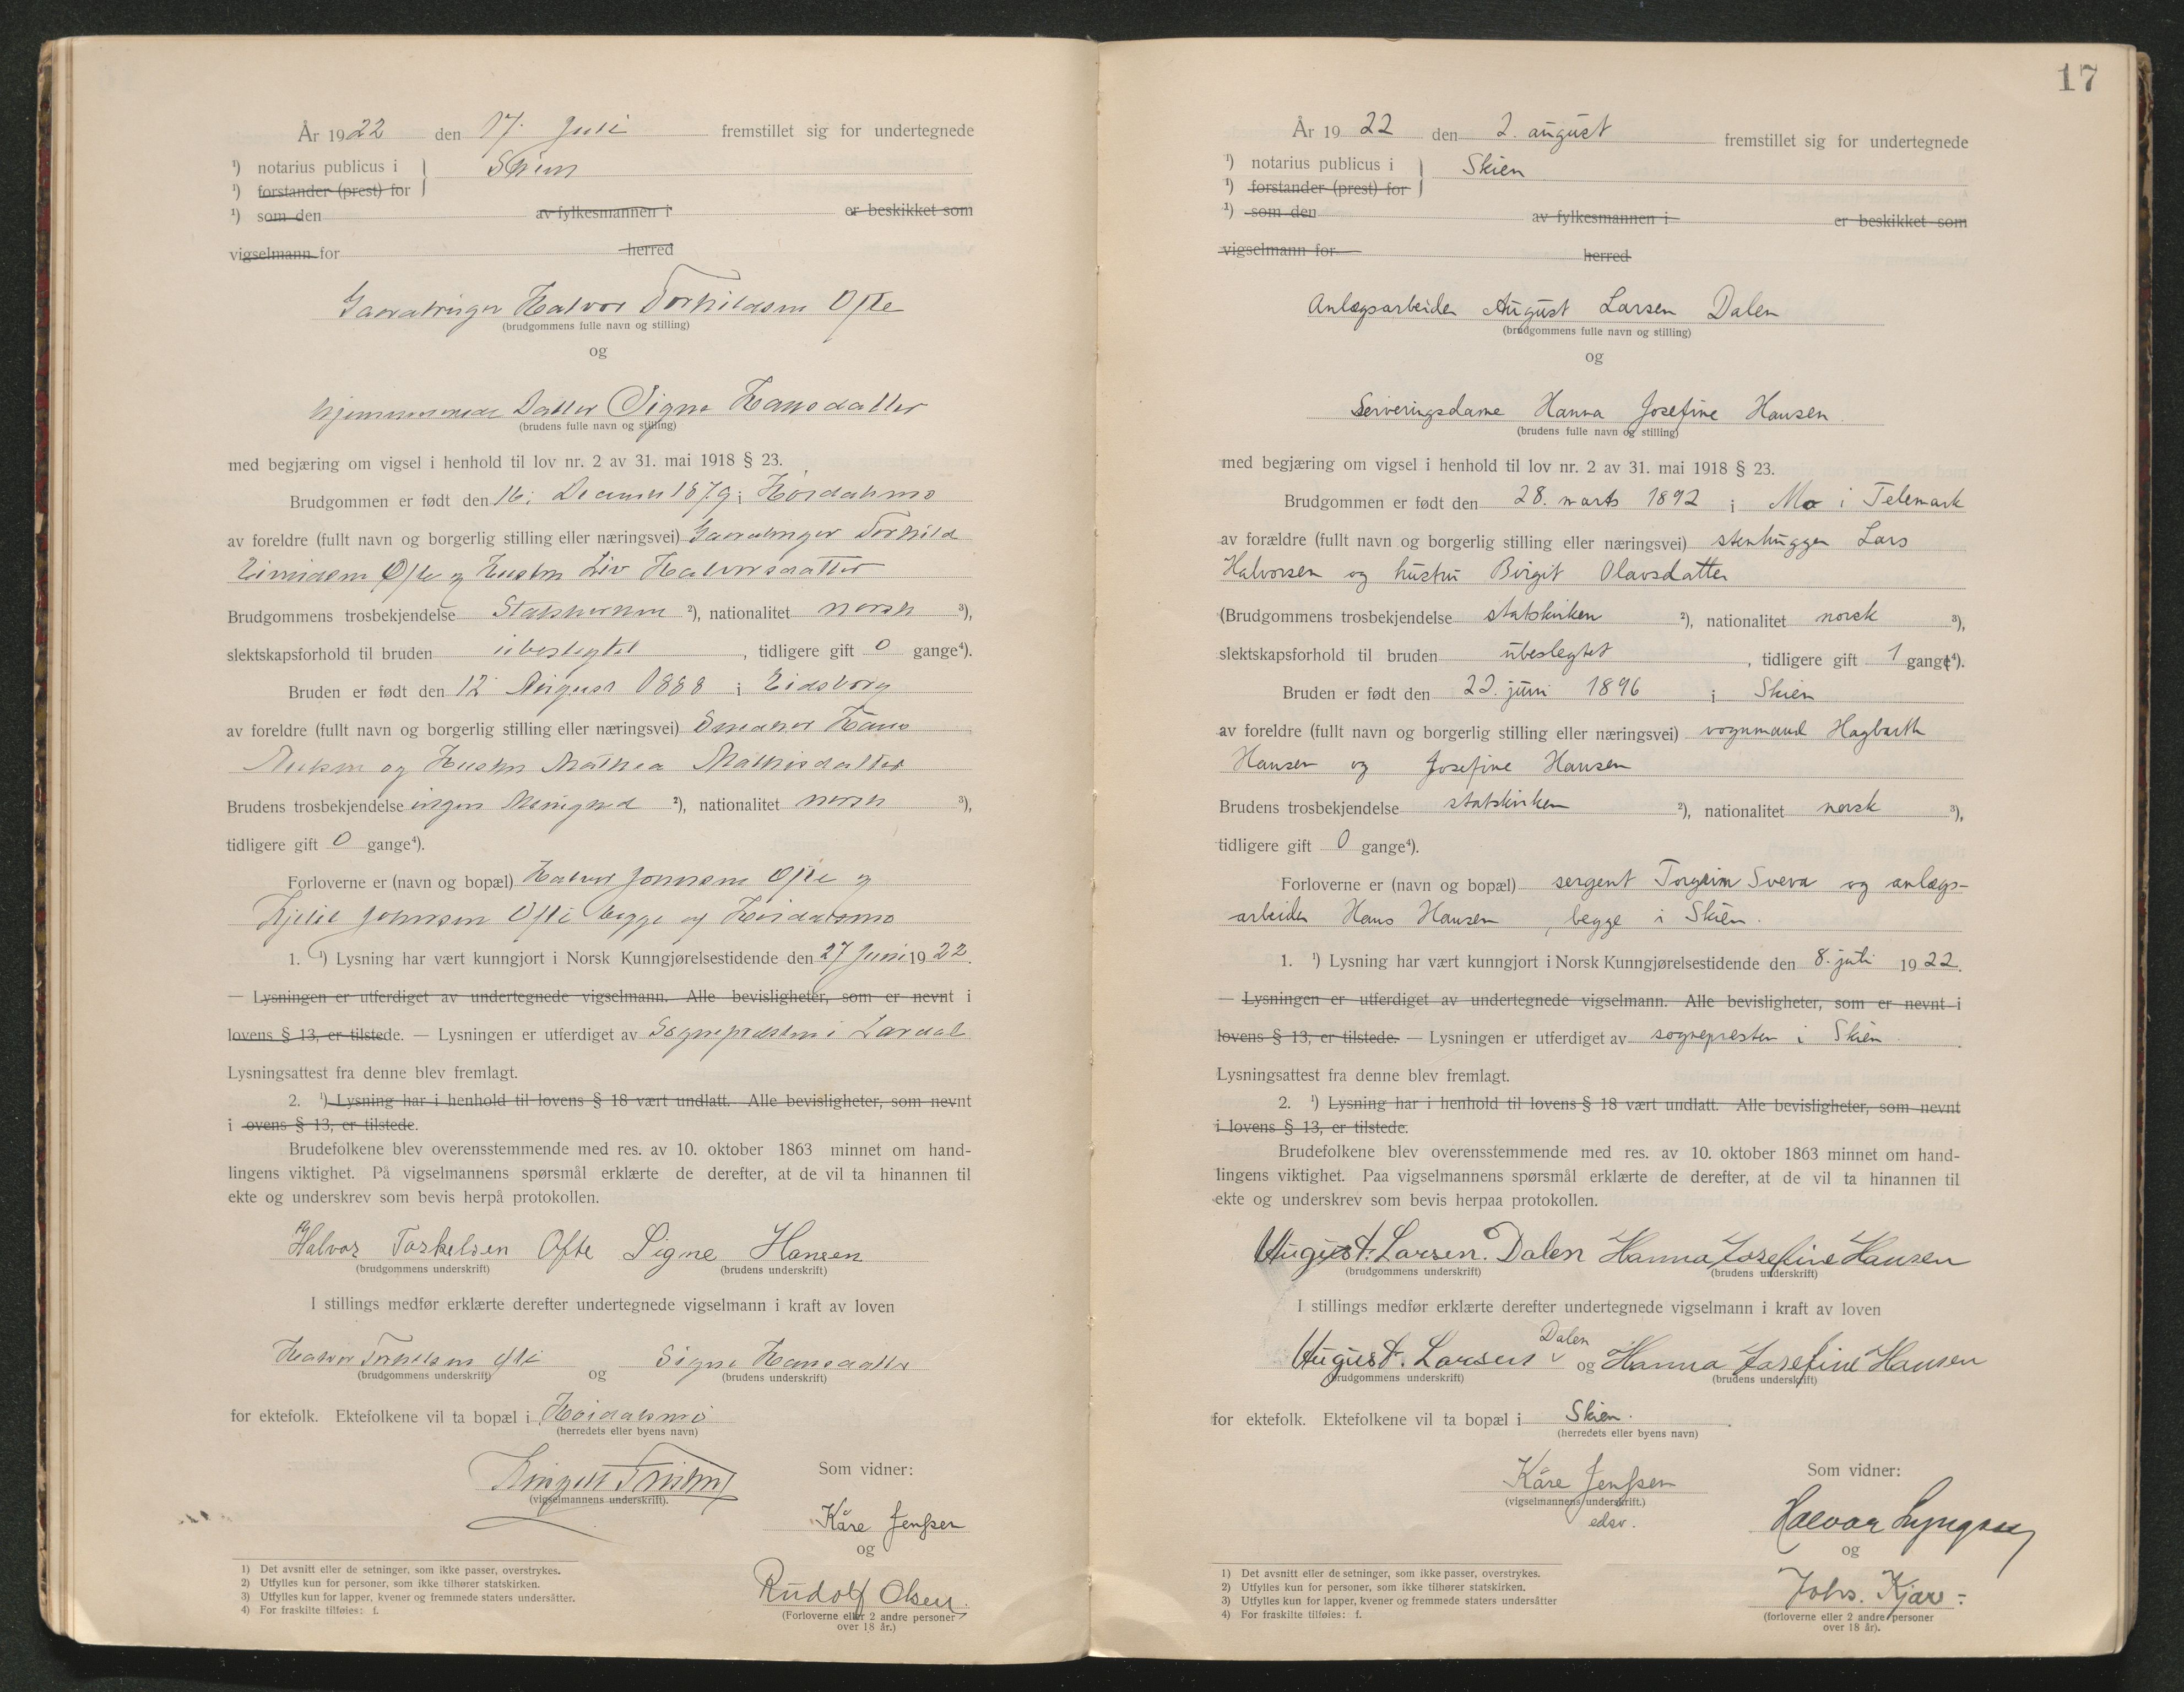 År 1922 den 17. Juli fremstillet sig for undertegnede
¹) notarius publicus i } Skien
¹) forstander (prest) for
¹) som den av fylkesmannen i er beskikket som
vigselmann for herred
Gaardbruger Halvor Torkildsen Ofte
(brudgommens fulle navn og stilling)
og
hjemmeværende Datter Signe Hansdatter
(brudens fulle navn og stilling)
med begjæring om vigsel i henhold til lov nr. 2 av 31. mai 1918 § 23.
Brudgommen er født den 16. December 1879 i Høidalsmo
av foreldre (fullt navn og borgerlig stilling eller næringsvei) Gaardbruger Torkild
Eivindsen Ofte og Hustru Liv Halvorsdatter
Brudgommens trosbekjendelse Statskirken ²), nationalitet norsk ³),
slektskapsforhold til bruden ubeslegtet, tidligere gift 0 gange⁴).
Bruden er født den 12 August 1888 i Eidsborg
av foreldre (fullt navn og borgerlig stilling eller næringsvei) Smaker Hans
og Hustru Mathea Mathisdatter
Brudens trosbekjendelse ingen Menighed ²), nationalitet norsk ³),
tidligere gift 0 gange⁴).
Forloverne er (navn og bopæl) Halvor Johnsen Ofte og
Kjetil Johnsen Ofte begge af Høidalsmo
1. ¹) Lysning har vært kunngjort i Norsk Kunngjørelsestidende den 27 Juni 1922.
— Lysningen er utferdiget av undertegnede vigselmann. Alle bevisligheter, som er nevnt i
lovens § 13, er tilstede. — Lysningen er utferdiget av Sognepræsten i Lardal
Lysningsattest fra denne blev fremlagt.
2. ¹) Lysning har i henhold til lovens § 18 vært undlatt. Alle bevisligheter, som nevnt
i ovens § 13, er tilstede.
Brudefolkene blev overensstemmende med res. av 10. oktober 1863 minnet om hand-
lingens viktighet. På vigselmannens spørsmål erklærte de derefter, at de vil ta hinannen til
ekte og underskrev som bevis herpå protokollen.
Halvor Torkelsen Ofte Signe Hansen
(brudgommens underskrift) (brudens underskrift)
I stillings medfør erklærte derefter undertegnede vigselmann i kraft av loven
Halvor Torkildsen Ofte og Signe Hansdatter
(brudgommens underskrift) (brudens underskrift)
for ektefolk. Ektefolkene vil ta bopæl i Høidalsmo
(herredets eller byens navn)
(vigselmannens underskrift).
Som vidner:
Kåre Jenssen
og
Rudolf Olsen.
(Forloverne eller 2 andre personer
over 18 år.)
1) Det avsnitt eller de setninger, som ikke passer, overstrykes.
2) Utfylles kun for personer, som ikke tilhører statskirken.
3) Utfylles kun for lapper, kvener og fremmede staters undersåtter.
4) For fraskilte tilføies: f.
17
År 1922 den 2. august fremstillet sig for undertegnede
¹) notarius publicus i } Skien
¹) forstander (prest) for
¹) som den av fylkesmannen i er beskikket som
vigselmann for herred
Anlægsarbeider August Larsen Dalen
(brudgommens fulle navn og stilling)
og
Serveringsdame Hanna Josefine Hansen.
(brudens fulle navn og stilling)
med begjæring om vigsel i henhold til lov nr. 2 av 31. mai 1918 § 23.
Brudgommen er født den 28. marts 1892 i Mo i Telemark
av forældre (fullt navn og borgerlig stilling eller næringsvei) stenhugger Lars
Halvorsen og hustru Birgit Olavsdatter
(Brudgommens trosbekjendelse statskirken ²), nationalitet norsk ³),
slektskapsforhold til bruden ubeslegtet, tidligere gift 1 gang⁴).
Bruden er født den 22. juni 1896 i Skien
av foreldre (fullt navn og borgerlig stilling eller næringsvei) vognmand Hagbarth
Hansen og Josefine Hansen
Brudens trosbekjendelse statskirken ²), nationalitet norsk ³),
tidligere gift 0 gange⁴).
Forloverne er (navn og bopæl) sergent Torgrim Sveva og anlægs-
arbeider Hans Hansen, begge i Skien.
1. ¹) Lysning har vært kunngjort i Norsk Kunngjørelsestidende den 8. juli 1922.
— Lysningen er utferdiget av undertegnede vigselmann. Alle bevisligheter, som er nevnt i
lovens § 13, er tilstede. — Lysningen er utferdiget av sognepresten i Skien.
Lysningsattest fra denne blev fremlagt.
2. ¹) Lysning har i henhold til lovens § 18 vært undlatt. Alle bevisligheter, som nevnt
i lovens § 13, er tilstede.
Brudefolkene blev overensstemmende med res. av 10. oktober 1863 minnet om hand-
lingens viktighet. Paa vigselmannens spørsmål erklærte de derefter, at de vil ta hinannen til
ekte og underskrev som bevis herpaa protokollen.
August. Larsen. Dalen Hanna Josefine Hansen
(brudgommens underskrift) (brudens underskrift)
I stillings medfør erklærte derefter undertegnede vigselmann i kraft av loven
August. Larsen Dalen og Hanna Josefine Hansen
(brudgommens underskrift) (brudens underskrift)
for ektefolk. Ektefolkene vil ta bopæl i Skien.
(herredets eller byens navn)
Kåre Jenssen
(vigselmannens underskrift.)
edsv.
Som vidner:
Halvor Lyngaas
og
Johs. Kjær
(forloverne eller 2 andre personer
over 18 år).
1) Det avsnitt eller de setninger, som ikke passer, overstrykes.
2) Utfylles kun for personer, som ikke tilhører statskirken.
3) Utfylles kun for lapper, kvener og fremmede staters undersåtter
4) For fraskilte tilføies: f.